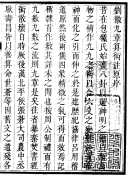 劉徽九章算術注原序
昔在包犧氏始畫八卦以通神明之德以類萬
物之情作九九之術以合六爻之變暨于黃帝
神而化之引而伸之於是建歷紀協律呂用稽
道原然後兩儀四象精微之氣可得而效焉記
稱隸首作數其詳未之聞也按周公制禮而有
九數九數之流則九章是矣往者暴秦焚書經
術散壞自時厥後漢北平侯張蒼大司農中丞
耿壽昌皆以善算命世蒼等因舊文之遺殘各